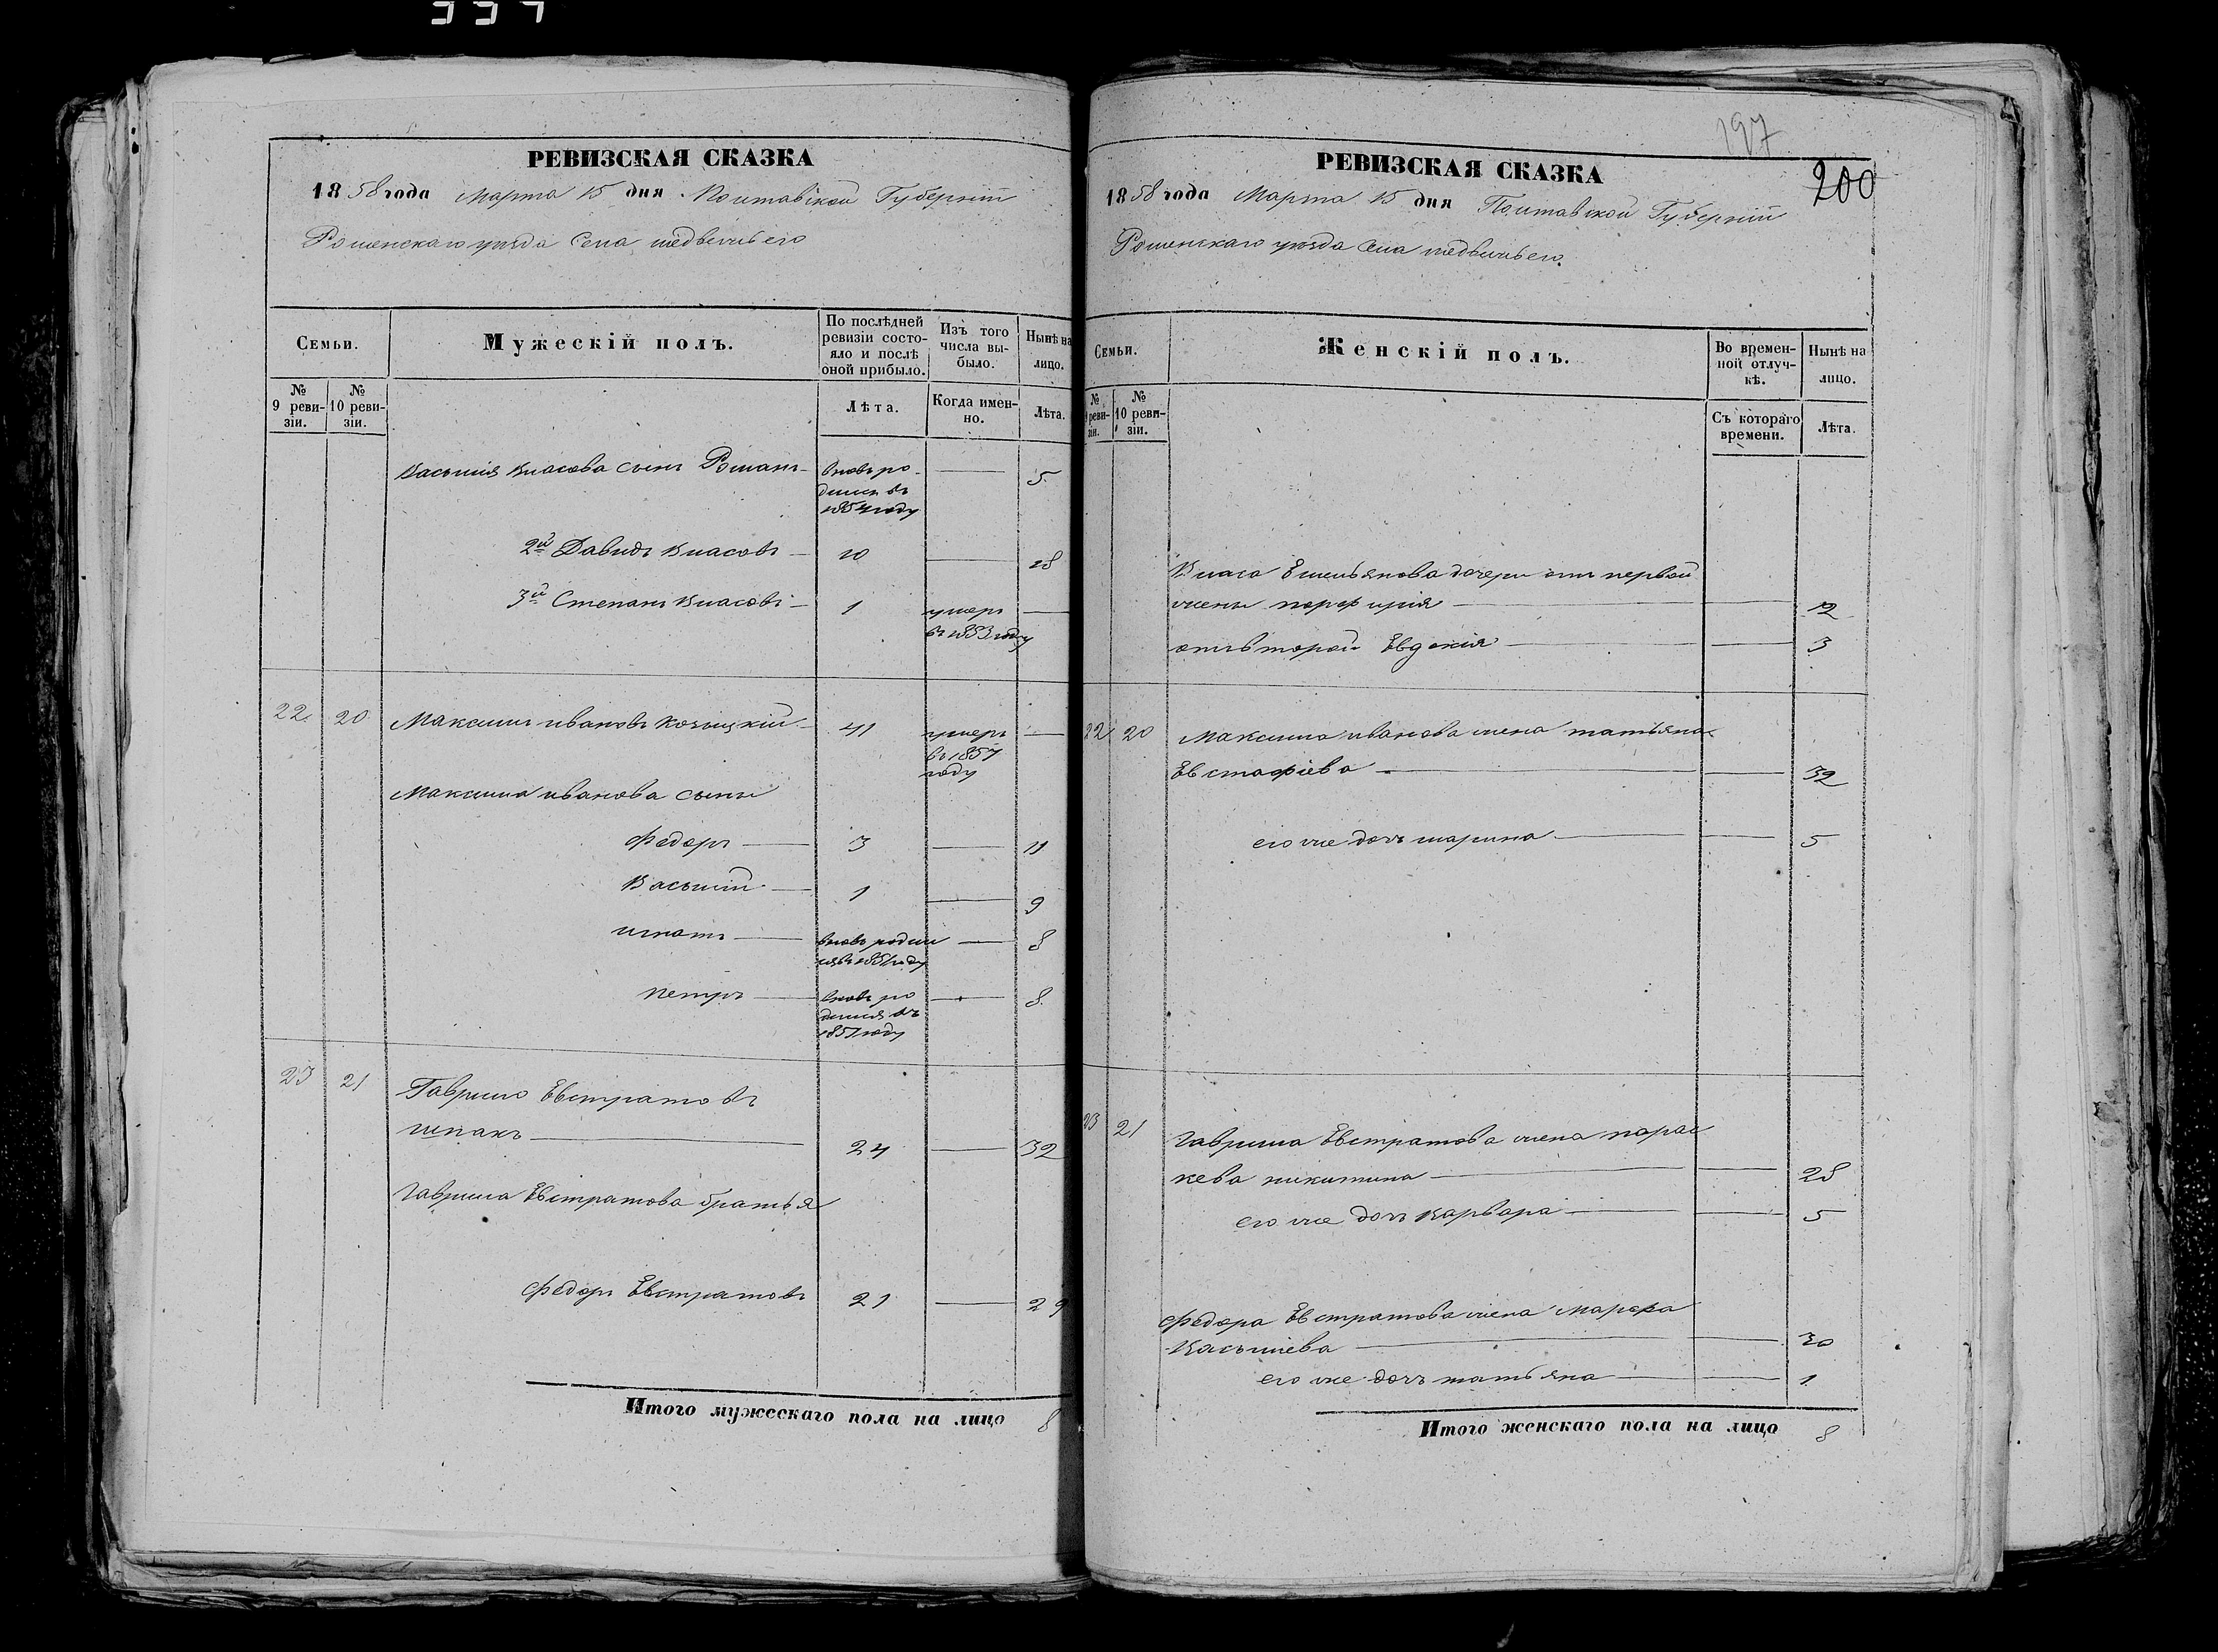 РЕВИЗСКАЯ СКАЗКА
1858 года Марта 15 дня Полтавской Губерніи
Роменскаго уезда Села медвежьего
Семьи.
Мужескій полъ.
По послѣдней ревизіи состо-
яло и послѣ
оной прибыло.
Изъ того
числа вы-
было.
Нынѣ на
лицо.
№
9 реви-
зіи.
№
10 реви-
зіи.
Лѣта.
Когда имен-
но.
Лѣта.
Василія власова сынъ Романъ вновь ро- 5
дился въ
1854 году
2й Давидъ власовъ 10 18
3й Степанъ власовъ 1 умеръ
въ 1853 году
22 20 Максимъ ивановъ 41 умеръ
въ 1857
году
Максима иванова сыны
Федоръ 3 11
Василій 1 9
игнатъ вновь родил 8
ся въ 1851 году
петръ вновь ро 8
дился въ
1851 году
23 21 Гаврило Евстратовъ
шпакъ 24 32
Гаврила Евстратова братья
Федоръ Евстратовъ 21 29
Итого мужескаго пола на лицо 8
197
200
РЕВИЗСКАЯ СКАЗКА
1858 года Марта 15 дня Полтавской Губерніи
Роменскаго уезда Села медвежьего.
Семьи.
Женскій полъ.
Во времен-
ной отлуч-
кѣ.
Нынѣ на
лицо.
№
9 реви-
зіи.
№
10 реви-
зіи.
Съ котораго
времени.
Лѣта.
Власа Емельянова дочери отъ первой
жены порфирія 12
отъ второй Евдокія 3
22 20 Максима иванова жена татьяна
Евстафіева 32
его же дочь марина 5
23 21 Гаврила Евстратова жена парас
кева никитина 28
его же дочь варвара 5
Федора Евстратова жена марфа
Василіева 30
его же дочь татьяна 1
Итого женскаго пола на лицо 8